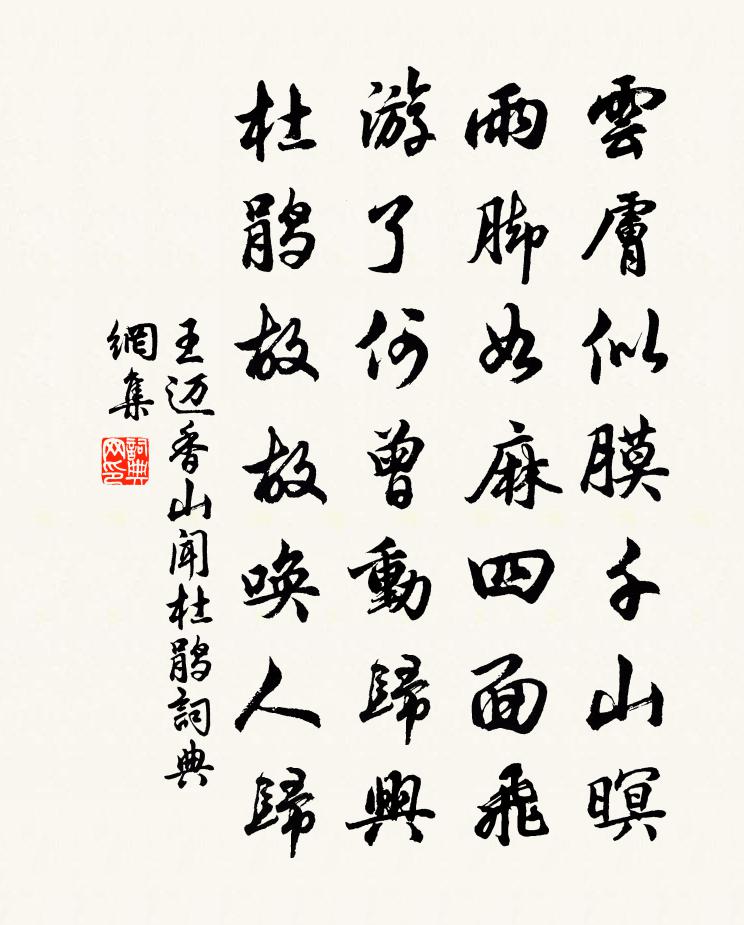 雲膚似膜千山暝
雨脚如麻四面飛
游了何曾動歸興
杜鹃故故唤人歸
王迈香山闻杜鹃詞典
網集
詞典
网印